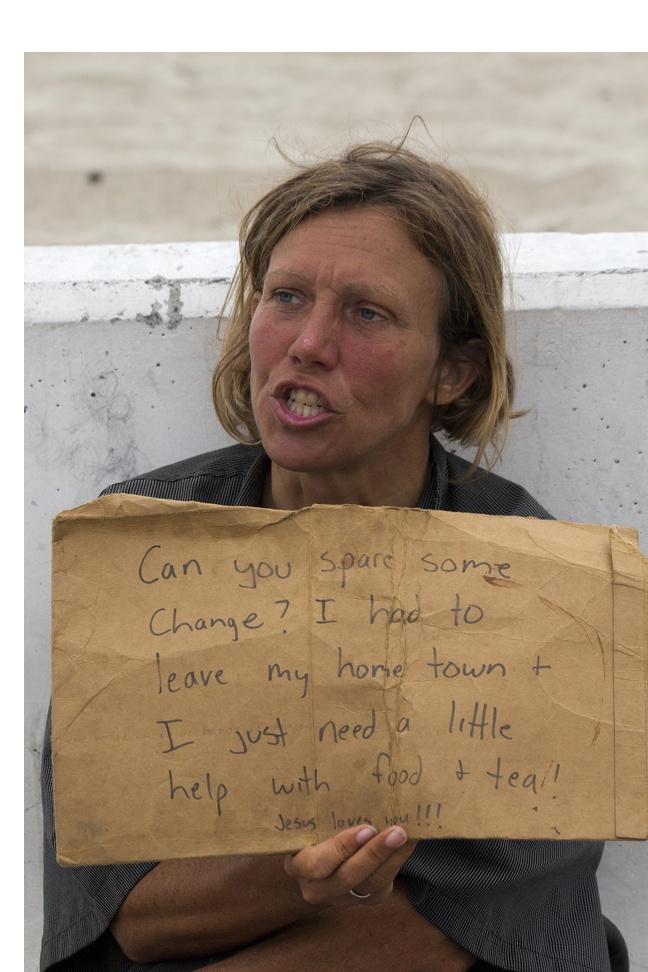 Can you spare some
Change? I had to
leave my home town +
I just need a little
help with food & tea!!
Jesus loves you!!!